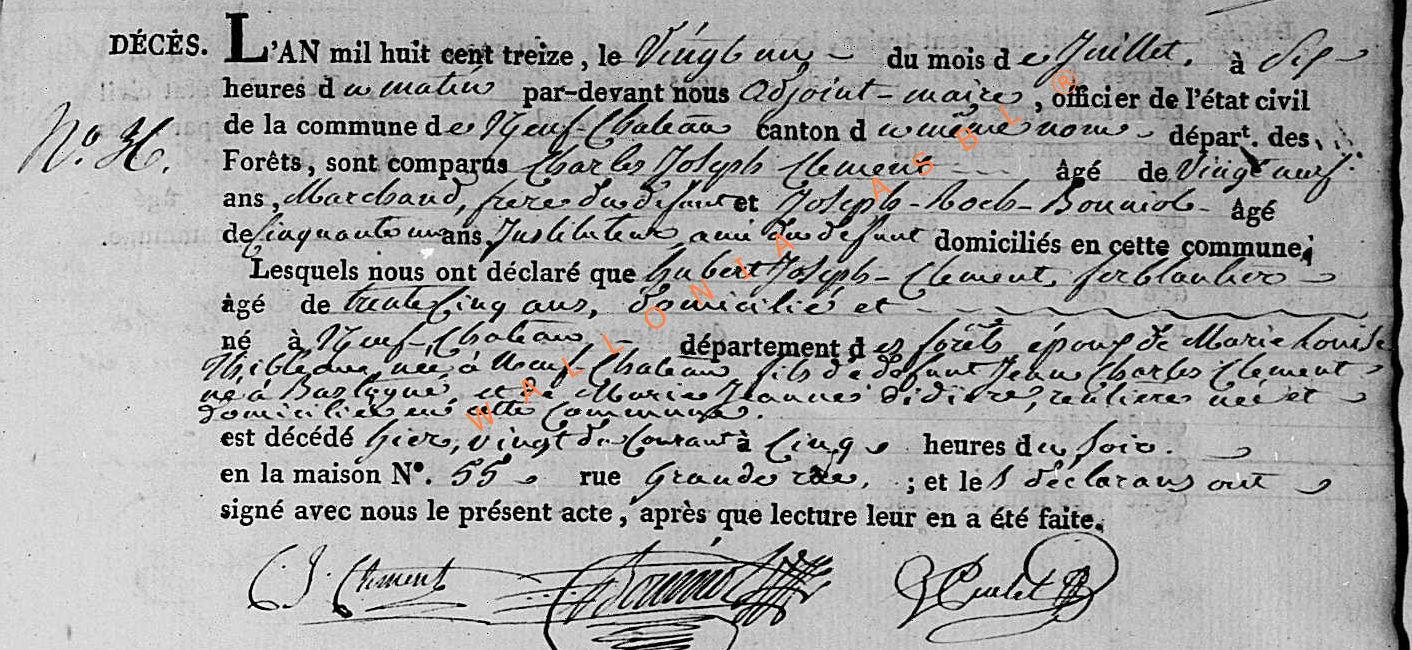 DÉCÈS. L'AN mil huit cent treize, le Vingt un du mois de Juillet. à Sept
heures du matin par-devant nous adjoint-maire, officier de l'état civil
de la commune de Neuf-Chateau canton du même nom départ. des
No. 36.
Forêts, sont comparus Charles Joseph Clement âgé de Vingt neuf
ans, Marchand, frere du défunt et Joseph-Roch-Bonniol âgé
de Cinquante un ans, Instituteur, ami du défunt domiciliés en cette commune;
Lesquels nous ont déclaré que hubert Joseph-Clement, ferblantier
âgé de trente Cinq ans, domicilié et
né à Neuf-Chateau, département des forêts époux de Marie Louise
née à Neuf-Chateau fils de défunt Jean Charles Clement
né à Bastogne, et de Marie Jeanne Didier, rentiere née et
domiciliée en cette Commune.
est décédé hier, vingt du Courant à Cinq heures du soir.
en la maison N°. 55 rue Grande rue, ; et les déclarans ont
signé avec nous le présent acte, après que lecture leur en a été faite.
C. J. Clement Bonniol
WALLONIA ASBL ®